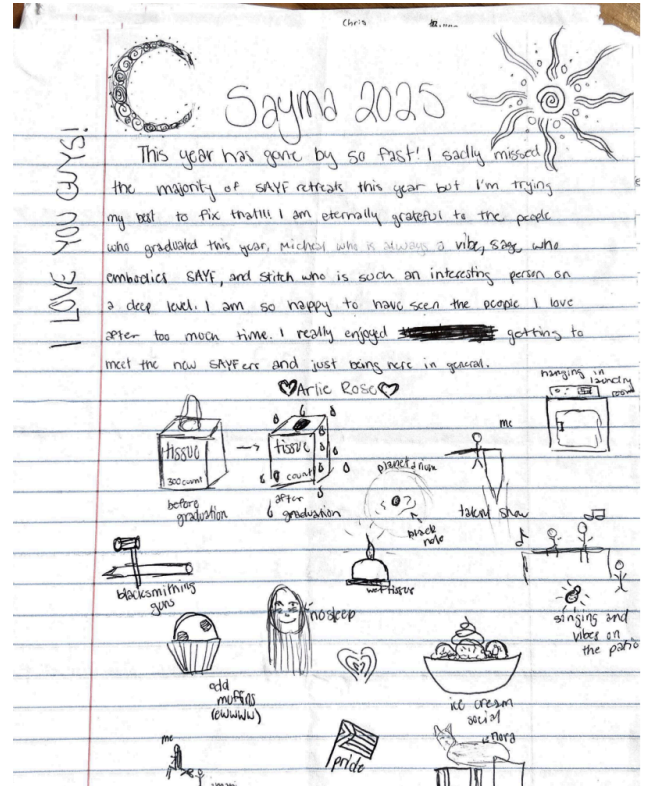 Chris
Sayma 2025
I LOVE YOU GUYS!
This year has gone by so fast! I sadly missed
the majority of SAYF retreats this year but I'm trying
my best to fix that!!! I am eternally grateful to the people
who graduated this year, Micheal who is always a vibe, sage who
embodies SAYF, and stitch who is such an interesting person on
a deep level. I am so happy to have seen the people I love
after too much time. I really enjoyed getting to
meet the new SAYFers and just being here in general.
♡Arlie Rose♡
hanging in
laundry
room
tissue
300 count
before
graduation
tissue
0 count
after
graduation
planetarium
black
hole
me
talent show
blacksmithing
guns
wet tissue
singing and
vibes on
the patio
no sleep
odd
muffins
(ewwww)
ice cream
social
me
pride
nora